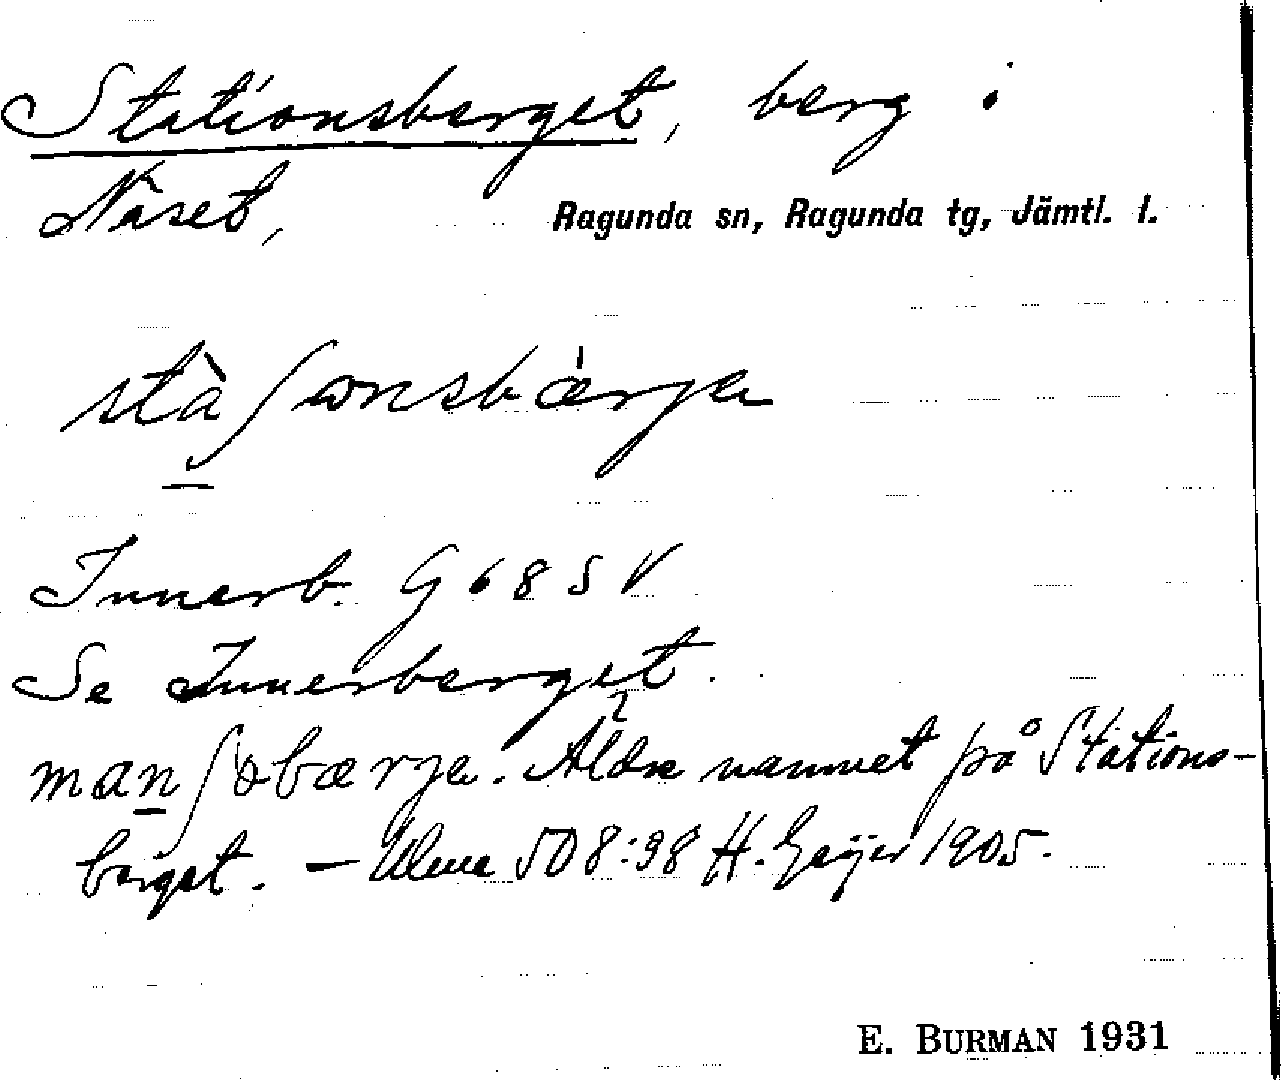 Stationsberget, berg i
Näset, Ragunda sn, Ragunda tg, Jämtl. l.
stàʃonsbærje
Innerb. G 68 SV
Se Innerberget.
manʃobærje. Äldre namnet på Stations-
berget. – Ulma 508:98 H. Geijer 1905.
E. BURMAN 1931